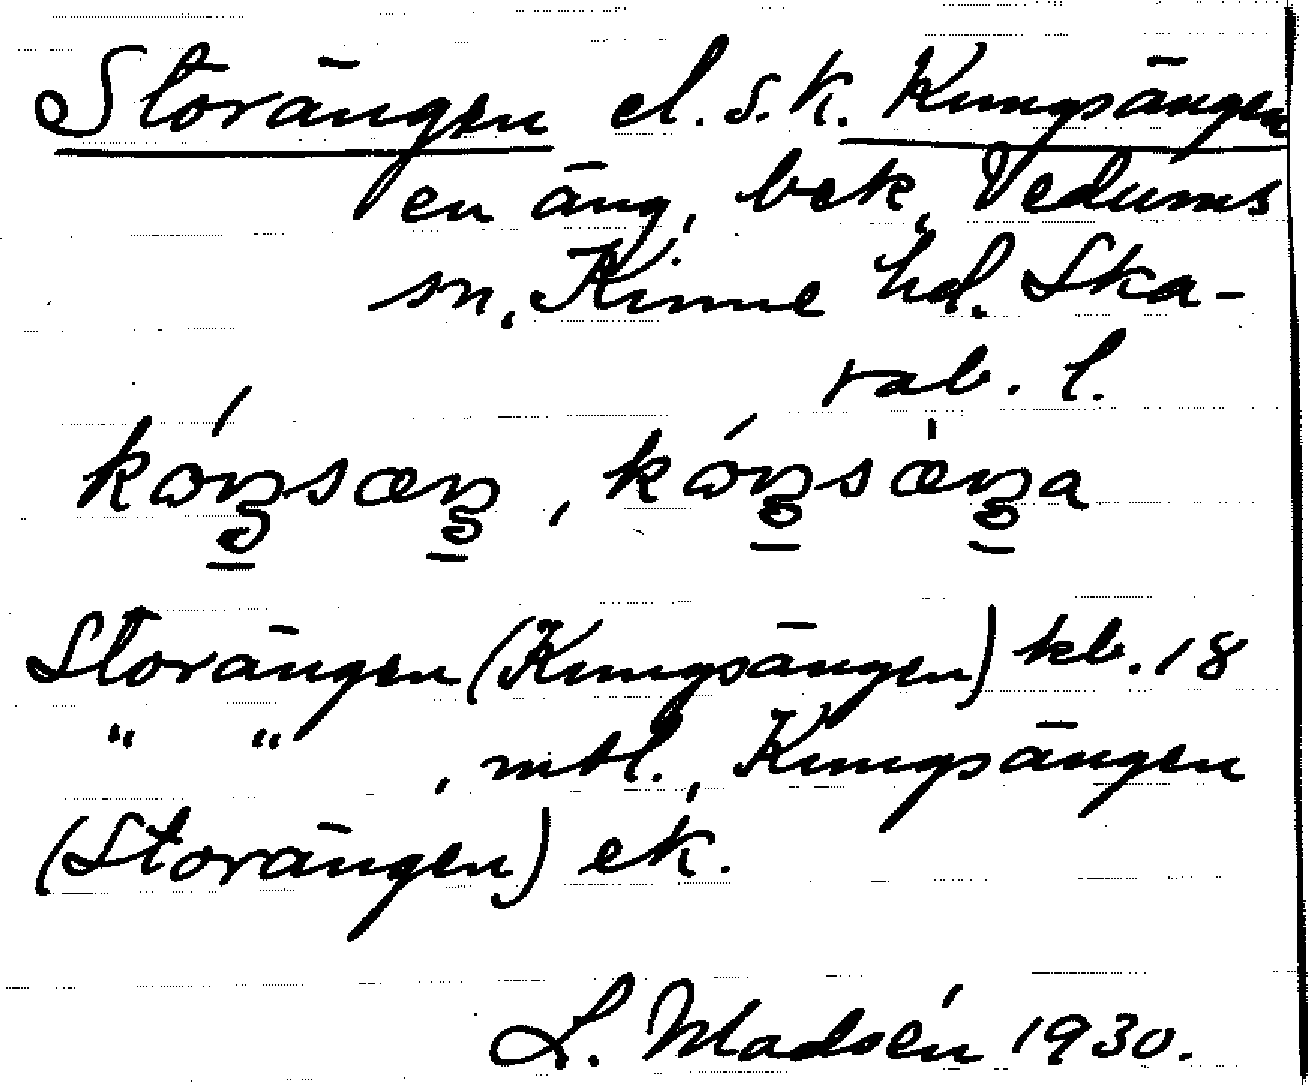 Storängen el. s.k. Kungsängen
en äng, bek, Vedums
sn, Kinne hd. Ska-
rab. l.
kóŋsæŋ, kóŋsæ̀ŋa
Storängen (Kungsängen) kb. 18
" " , mtl., Kungsängen
(Storängen) ek.
L. Madsén 1930.